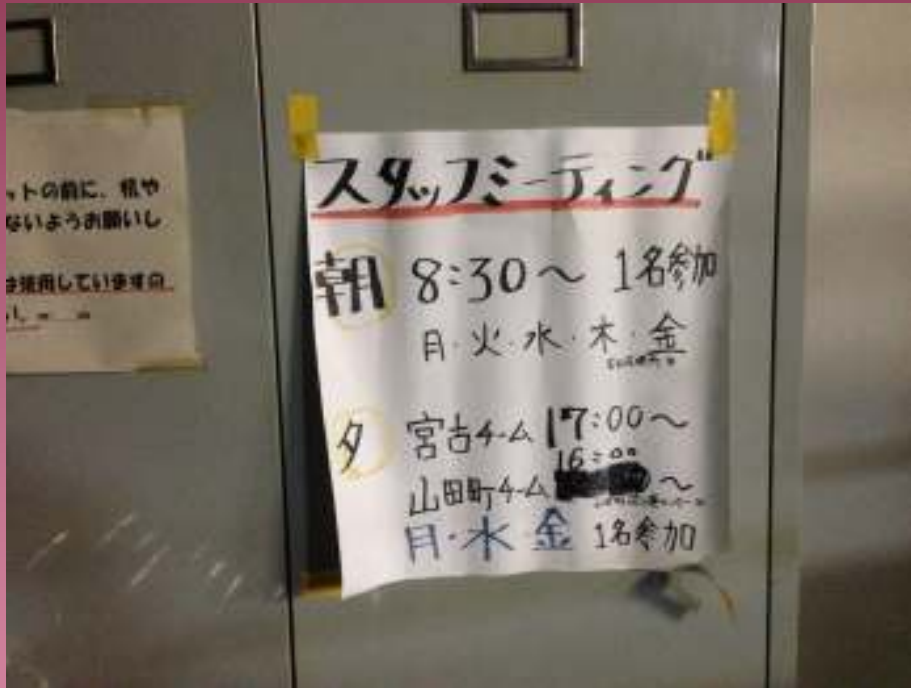 ットの前に、机や
ないようお願いし
は使用していますの
スタッフミーティング
朝 8:30～ 1名参加
月・火・水・木・金
夕 宮古チーム 17:00～
16:00
山田町チーム ～
月・水 金 1名参加